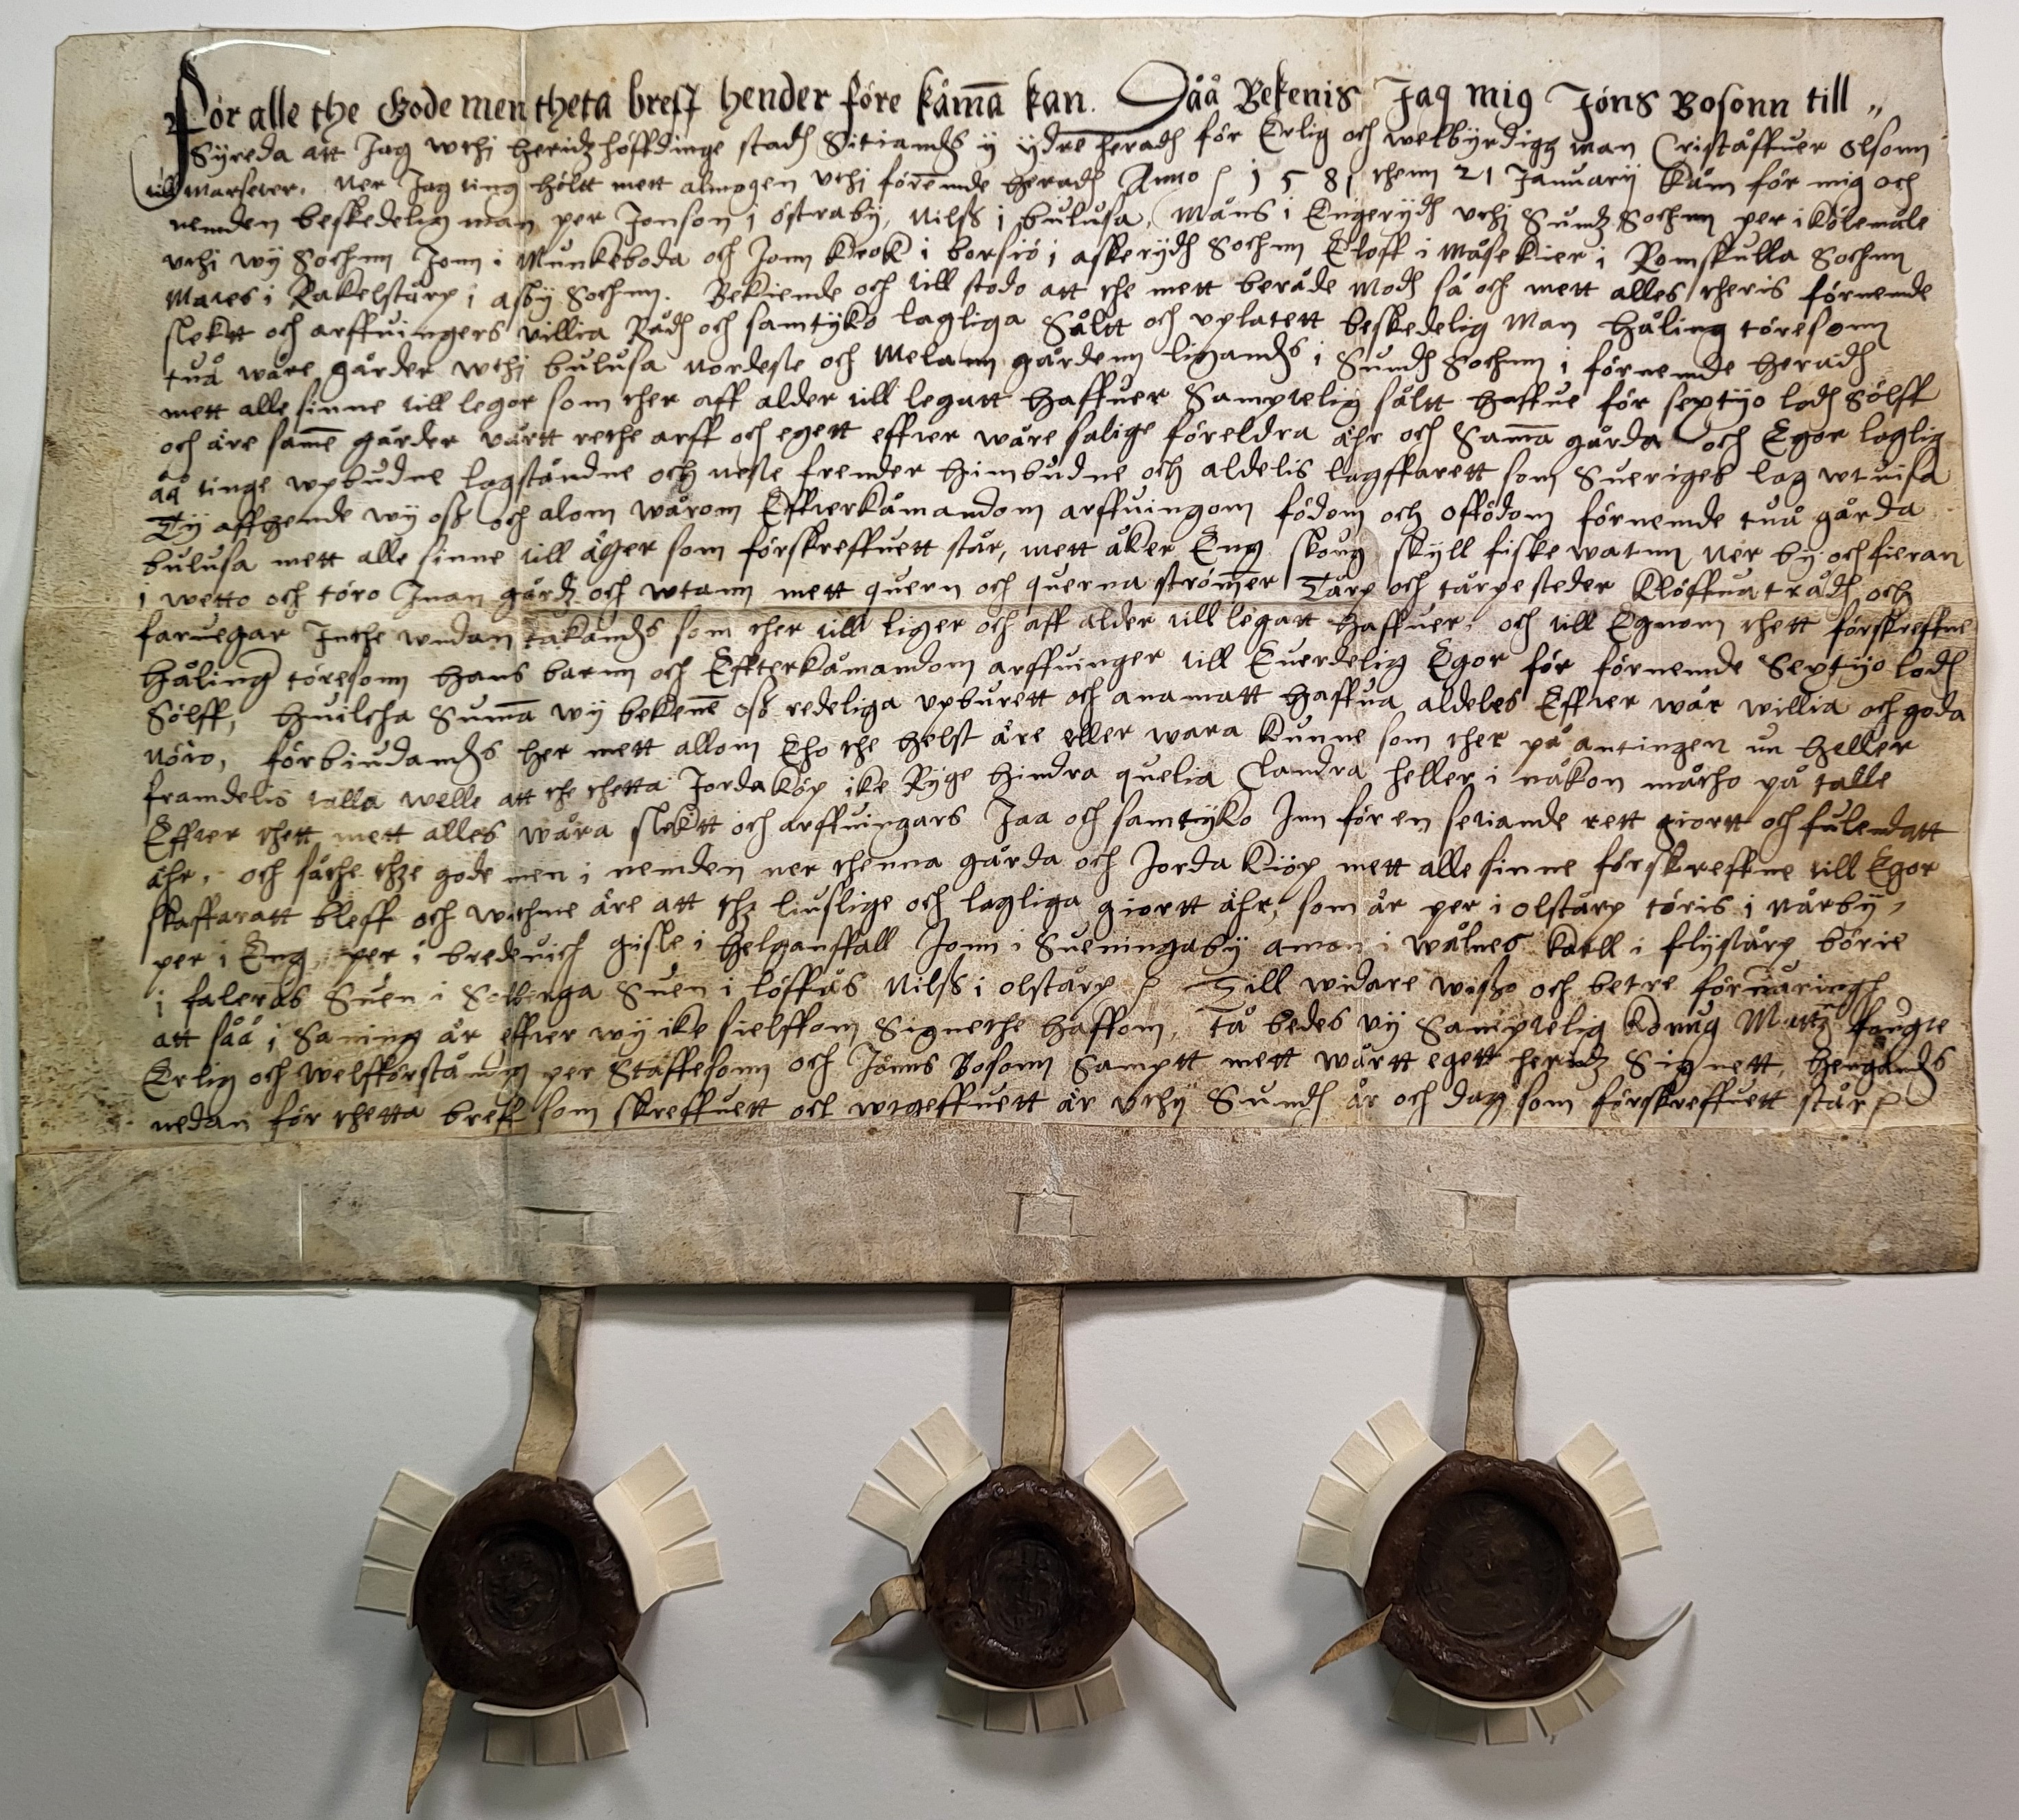 För alle the Gode men theta breff hender före kåmā kan. Såå Bekenis Jag mig Jöns Bosonn till
Syreda att Jag wthj heridzhöffdinge stadh Sitiandhs ÿ ÿdre heradh för Erlig och welbÿrdigg man Criståffuer Olsonn
till marseter, ner Jag ting höltt mett almogen vthi förēmde heradh Anno 1581 thenn 21 Januarij kåm för mig och
nemden beskedelig man per Jonson i östrabÿ, Nilss i bulusa, Måns i Engerÿdh vthj Sundz Sochnn per i kölemåle
vthi wÿ Sochnn Jonn i Munkeboda och Jonn krok i borsiö i askerÿdh Sochnn Eloff i måsekier i Romskulla Sochnn
Mates i Rakelstårp i asbÿ Sochnn. Bekiende och till stodo att the mett beråde modh så och mett alles theris förnemde
slektt och arffuingers villia Rådh och samtÿko lagliga Såltt och vplatett beskedelig Man Håling töresonn
tuå wåre gårder wthj bulusa nordeste och Melann gårdenn ligandhs i Sundh Sochnn i förnemde heradh
mett alle sinne till legor som ther aff alder till legatt haffuer Samptelig såltt haffue för septijo lodh Sölff
och äre samē gårder vårtt rethe arff och egett effter wåre salige föreldra ähr och Samā gårda och Egor laglig
åå tinge vpbudne lagståndne och neste frender himbudne och aldelis lagffarett som Sueriges lag wtuisa
Tÿ affhende wÿ oss och alom wårom Effterkåmandom arffuingom födom och offödom förnemde tuå gårda
bulusa mett alle sinne till äger som förskreffuett står, mett åker Eng skoug skÿll fiskewatnn ner bÿ och fieran
i wetto och töro Jnan gårdz och wtann mett quern och querna strömer Tårp och tårpesteder Klöffua trådh och
faruegar Jnthe vndan takandhs som ther till liger och aff alder till legatt haffuer, och till Egnom thett förskreffne
Håling töresonn Hans barnn och Effterkåmandom arffuinger till Euerdelig Egor för förnemde Septijo lodh
Sölff, Huiltha Sumā wÿ bekenē oss redeliga vpburett och anamatt haffua aldeles Effter wår willia och goda
nöro, förbiudandhs her mett allom Eho the helst äre eller wara kunne som ther på antingen nu heller
framdelis talla welle att the thetta Jordaköp ike Rÿge hindra quelia Clandra heller i nåkon måtho på talle
Effter thett mett alles wåra slektt och arffuingars Jaa och samtÿko Jnn för en setiande rett giortt och fulendatt
ähr, och såthe thze gode men i nemden ner thenna gårda och Jorda kiöp mett alle sinne förskreffne till Egor
skaffaratt bleff och withne äre att thz liuslige och lagliga giortt ähr, som är per i olstårp töris i nårbÿ,
per i Eng, per i bredevich gisle i helganssfall Jonn i Sueningabÿ amon i wålnes karll i flÿstårp börie
i faleräs Suen i Solberga Suen i löffås Nilss i olstårp Till widare wisso och betre föruaringh
att såå i Saning är effter wÿ ike sielffom Signethe haffom, Tå bedes vÿ Samptelig konug Mattz fougte
Erlig och welfförståndig per Staffesonn och Jönns Bosonn Samptt mett wårtt egett heridz Signett, hengandhs
nedan för thetta breff som skreffuett och wtgeffuett är vthÿ Sundh år och dag som förskreffuett står